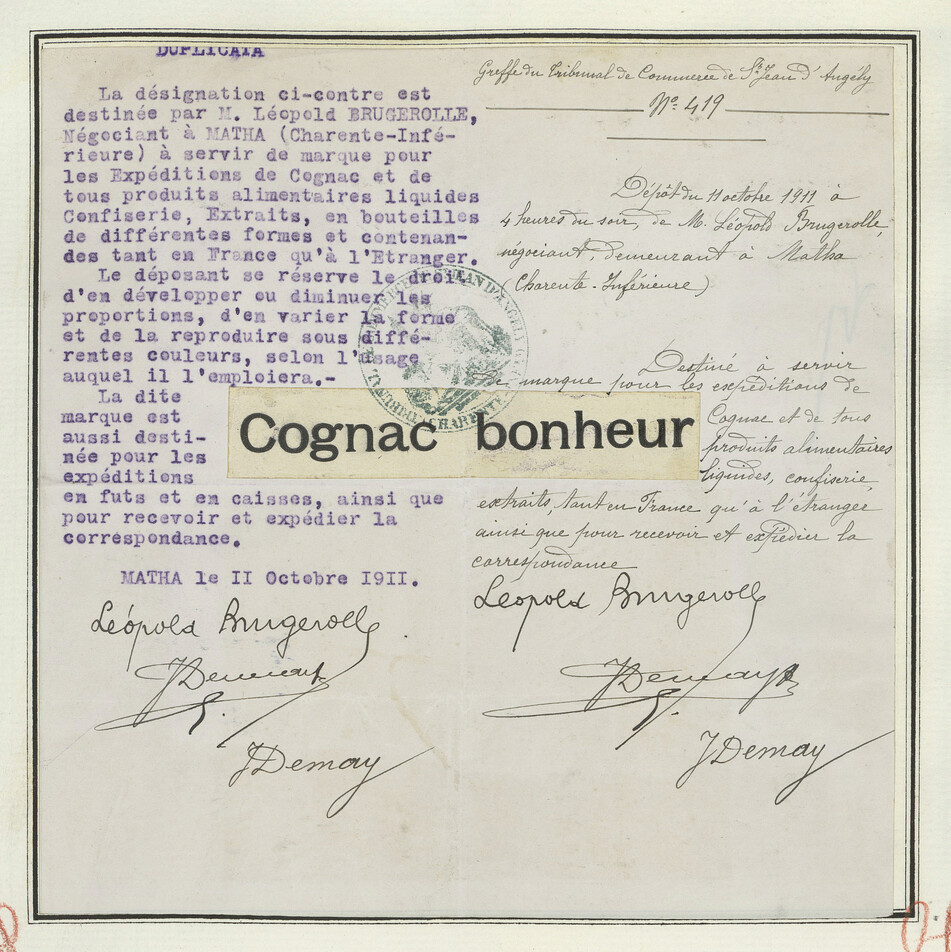 DUPLICATA
La désignation ci-contre est
destinée par M. Léopold BRUGEROLLE,
Négociant à MATHA (Charente-Infé-
rieure) à servir de marque pour
les Expéditions de Cognac et de
tous produits alimentaires liquides
Confiserie, Extraits, en bouteilles
de différentes formes et contenan-
des tant en France qu'à l'Etranger.
Le déposant se réserve le droit
d'en développer ou diminuer les
proportions, d'en varier la forme
et de la reproduire sous diffé-
rentes couleurs, selon l'usage
auquel il l'emploiera.-
La dite
marque est
aussi desti-
née pour les
expéditions
en futs et en caisses, ainsi que
pour recevoir et expédier la
correspondance.
MATHA le II Octobre I9II.
Léopold Brugerolle
JDemay
Cognac bonheur
Greffe du Tribunal de Commerce de St Jean d'Angély
No. 419
Dépôt du 11 octobre 1911 à
4 heures du soir, de M. Léopold Brugerolle,
négociant, demeurant à Matha
(Charente-Inférieure)
Destiné à servir
de marque pour les expéditions de
Cognac et de tous
produits alimentaires
liquides, confiserie,
extraits, tant en France qu'à l'étranger
ainsi que pour recevoir et expédier la
correspondance
Léopold Brugerolle
JDemay